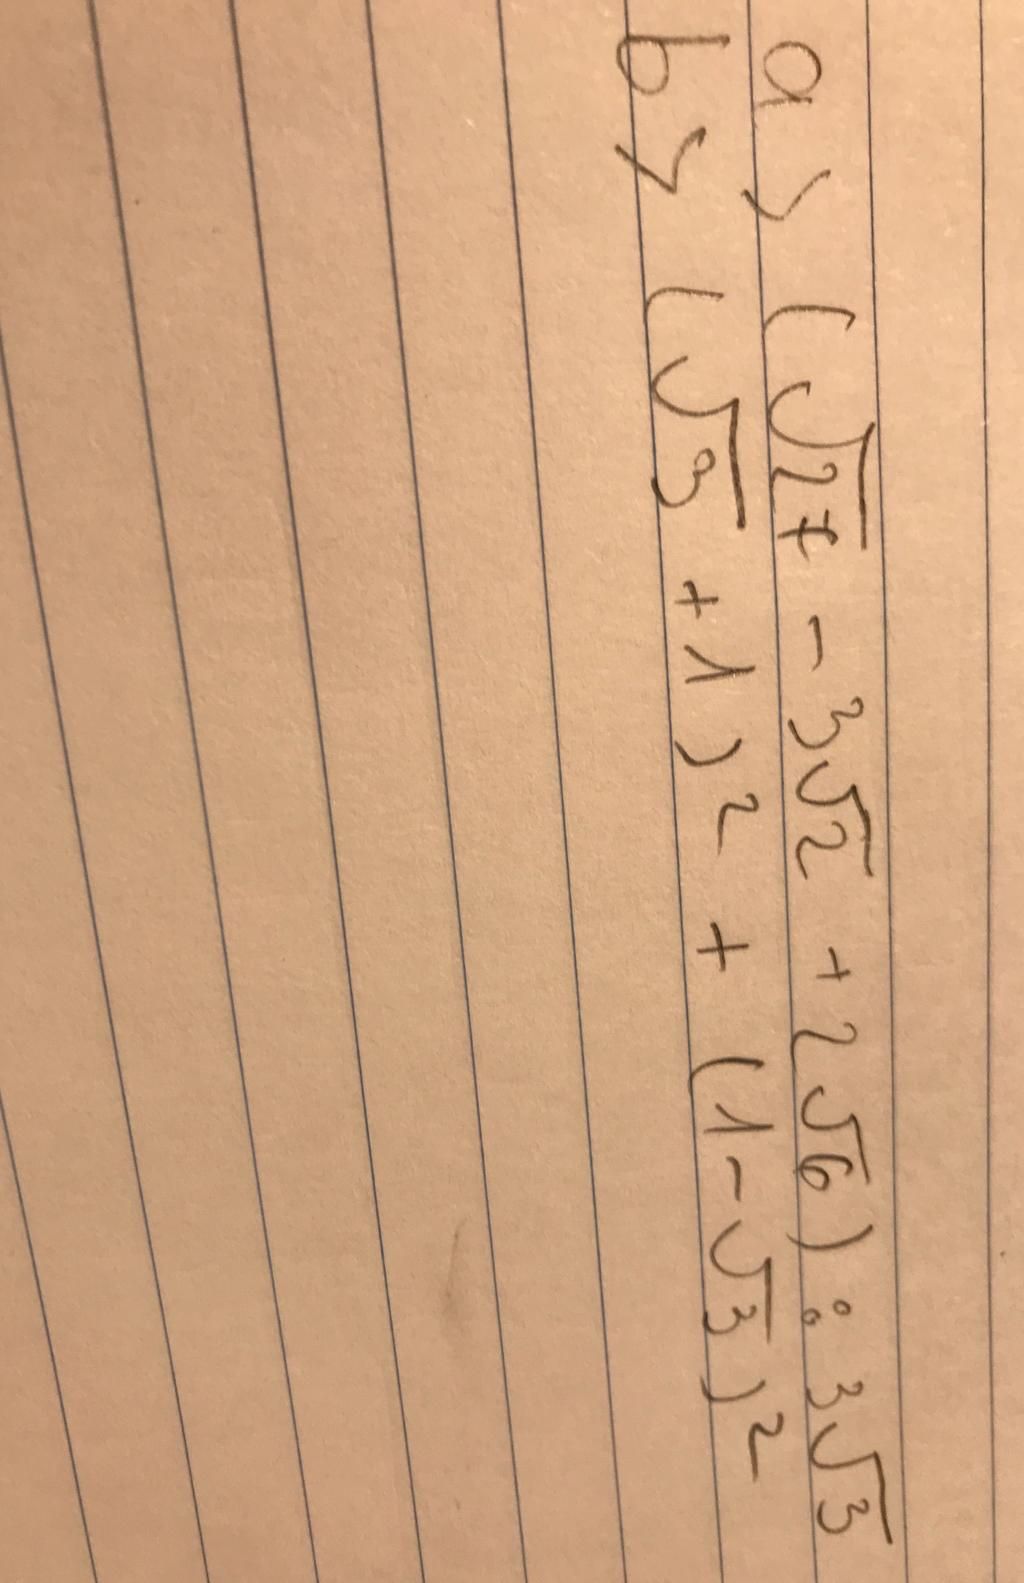 a) (√27 - 3√2 + 2√6) : 3√3
b) (√3 + 1)² + (1 - √3)²